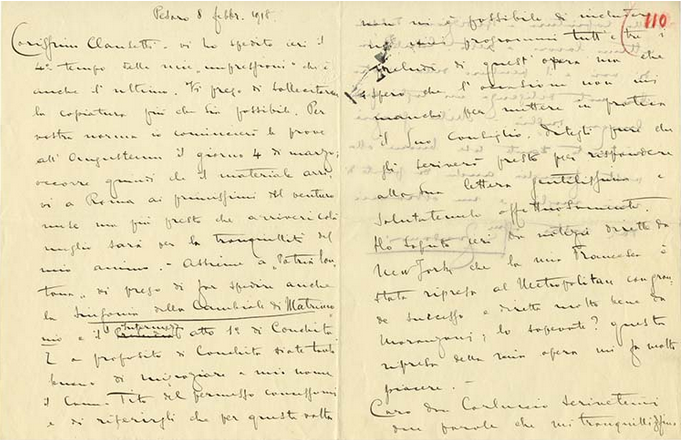 Pesaro 8 febbr. 1918.
Carissimo Clausetti. vi ho spedito ieri il
4º tempo delle mie "impressioni" che è
anche l'ultimo. Vi prego di sollecitarne
la copiatura più che sia possibile. Per
vostra norma io comincerò le prove
all'Augusteum il giorno 4 di marzo;
occorre quindi che il materiale arri-
vi a Roma ai primissimi del venturo
mese ma più presto che arriverà colà
meglio sarà per la tranquillità del
mio animo. - Assieme a "Patria lon-
tana" vi prego di far spedire anche
la Sinfonia della Cambiale di Matrimo-
nio e il intermezzo atto 1º di Conchita.
E a proposito di Conchita siate tanto
buono di ringraziare a mio nome
il Comm. Tito del permesso concessomi
e di riferirgli che per questa volta
110
non mi è possibile di includere
nei miei programmi tutti e tre i
preludi di quest'opera ma che
spero che l'occasione non mi
manchi per mettere in pratica
il suo consiglio. Ditegli pure che
gli scriverò presto per rispondere
alla sua lettera gentilissima e
salutatemelo affettuosamente.
Ho saputo ieri da notizie dirette da
New York che la mia Francesca è
stata ripresa al Metropolitan con gran-
de successo e diretta molto bene da
Moranzoni; lo sapevate? questa
ripresa della mia opera mi fa molto
piacere. -
Caro don Carluccio scrivetemi
due parole che mi tranquillizzino